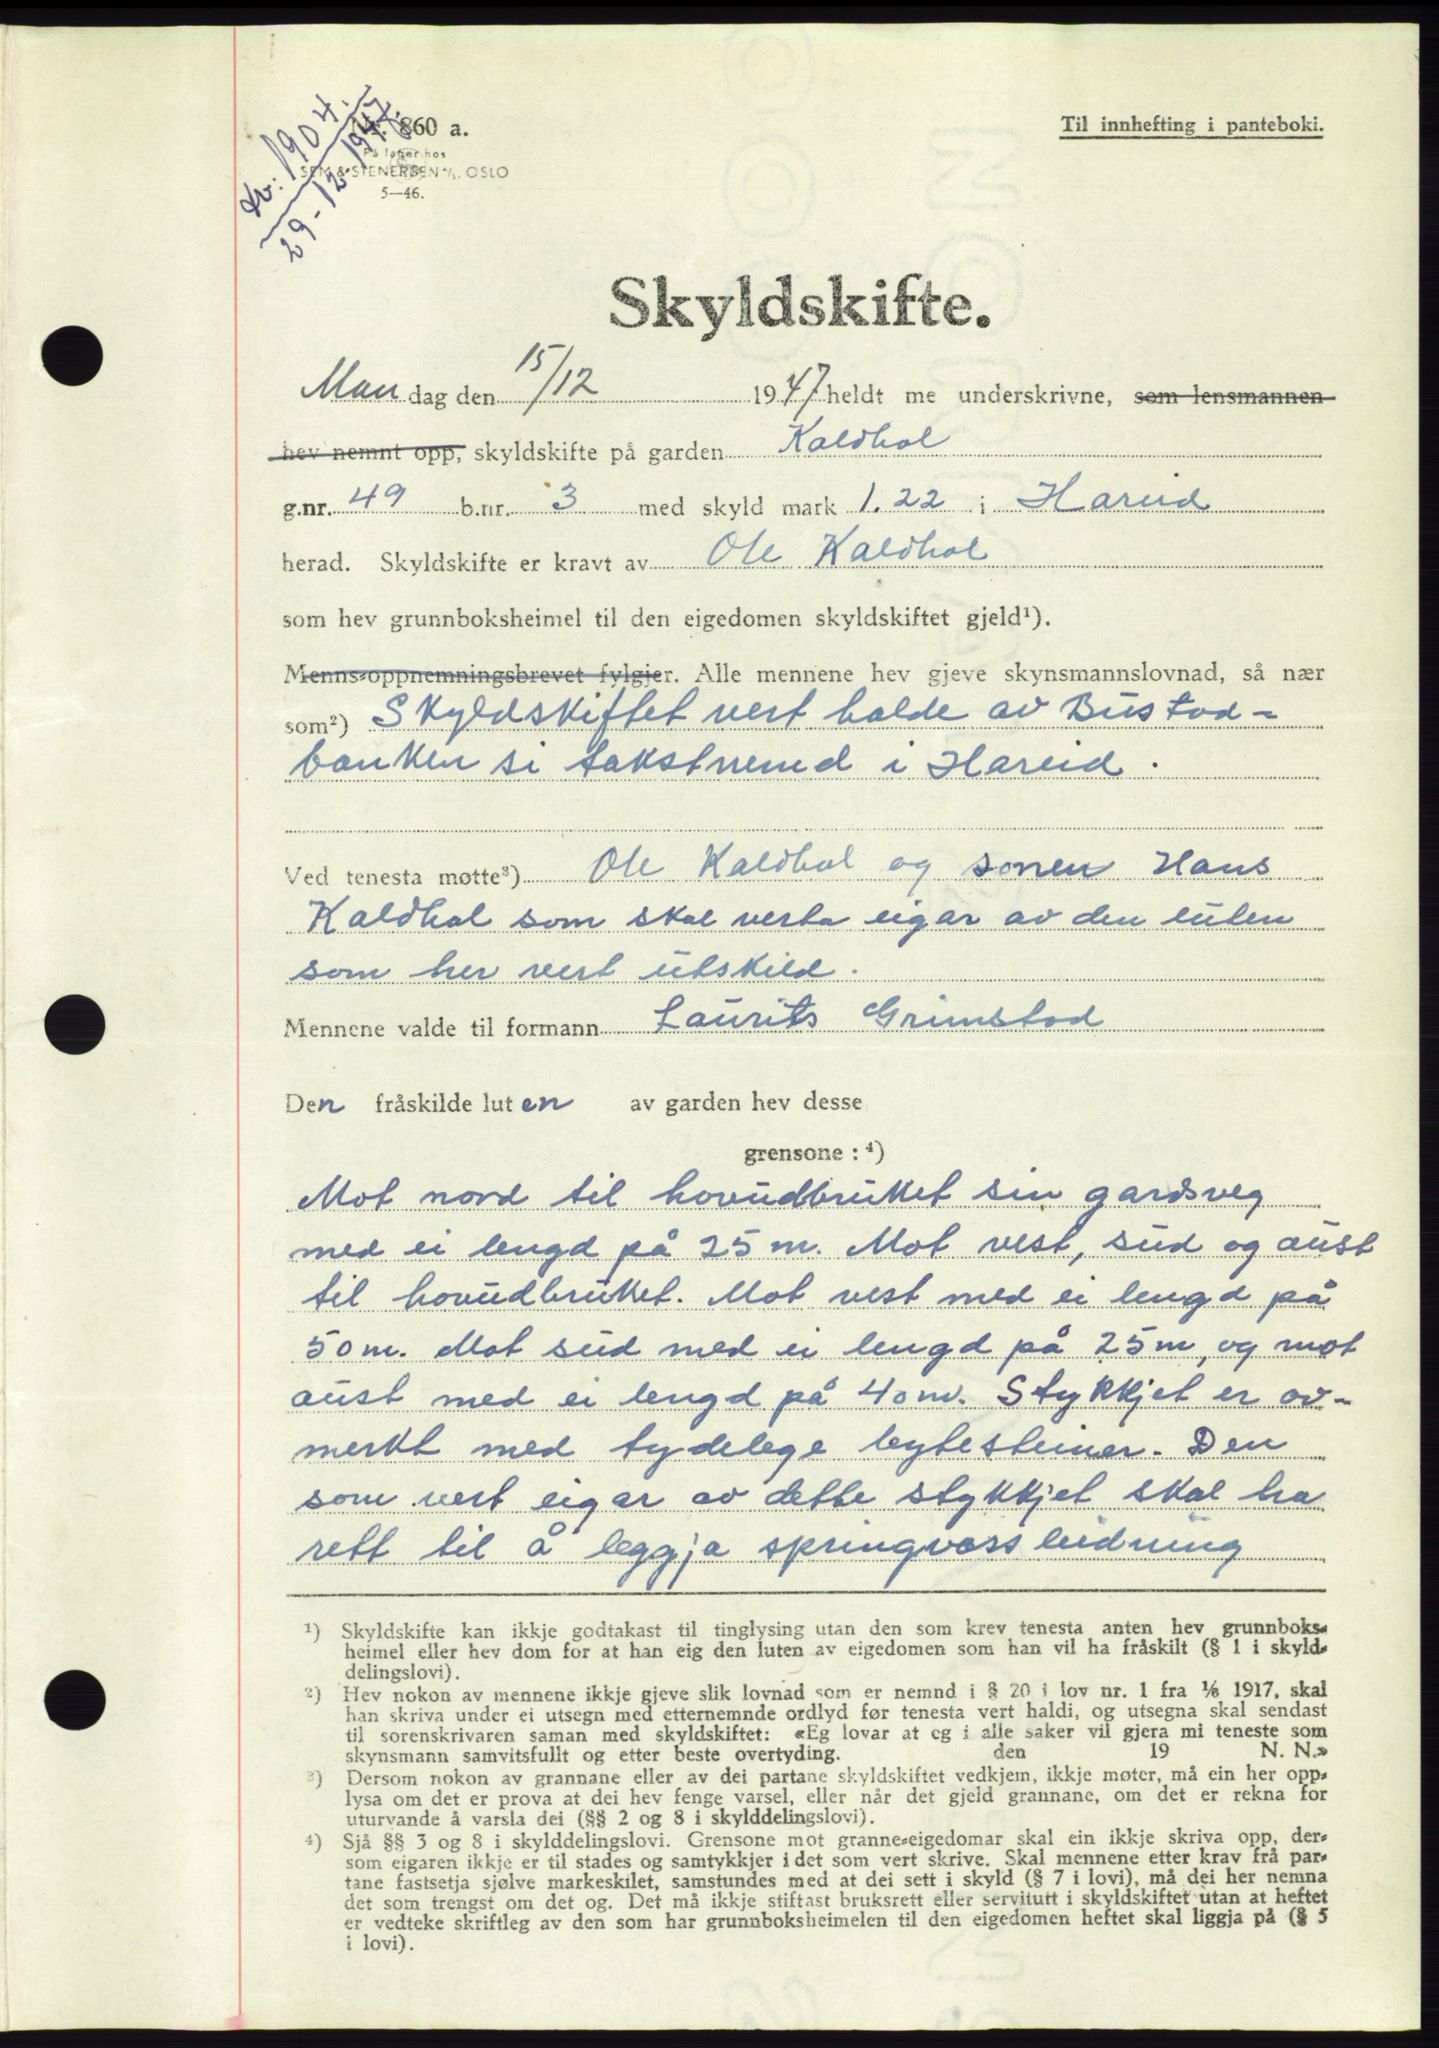 Kv: 1904.
29-12 1947.
Nr. 860 a.
På lager hos
SEM & STENERSEN A/S. OSLO
5—46.
Til innhefting i panteboki.
Skyldskifte.
Mandag den 15/12 1947 heldt me underskrivne, som lensmannen
hev nemnt opp, skyldskifte på garden Kaldhol
g.nr. 49 b.nr. 3 med skyld mark 1.22 i Hareid
herad. Skyldskifte er kravt av Ole Kaldhol
som hev grunnboksheimel til den eigedomen skyldskiftet gjeld¹).
Menns-oppnemningsbrevet fylgjer. Alle mennene hev gjeve skynsmannslovnad, så nær
som²) Skyldskiftet vert halde av Bustad-
banken si takstnemd i Hareid.
Ved tenesta møtte³) Ole Kaldhol og sonen Hans
Kaldhol som skal verta eigar av den luten
som her vert utskild.
Mennene valde til formann Laurits Grimstad
Den fråskilde luten av garden hev desse
grensone : ⁴)
Mot nord til hovudbruket sin gardsveg
med ei lengd på 25 m. Mot vest, sud og aust
til hovudbruket. Mot vest med ei lengd på
50 m. Mot sud med ei lengd på 25 m, og mot
aust med ei lengd på 40 m. Stykkjet er av-
merkt med tydelege bytesteiner. Den
som vert eigar av dette stykkjet skal ha
rett til å leggja springvassleidning
¹) Skyldskifte kan ikkje godtakast til tinglysing utan den som krev tenesta anten hev grunnboks-
heimel eller hev dom for at han eig den luten av eigedomen som han vil ha fråskilt (§ 1 i skyld-
delingslovi).
²) Hev nokon av mennene ikkje gjeve slik lovnad som er nemnd i § 20 i lov nr. 1 fra 1/6 1917, skal
han skriva under ei utsegn med etternemnde ordlyd før tenesta vert haldi, og utsegna skal sendast
til sorenskrivaren saman med skyldskiftet: «Eg lovar at eg i alle saker vil gjera mi teneste som
skynsmann samvitsfullt og etter beste overtyding. den 19 N. N.»
³) Dersom nokon av grannane eller av dei partane skyldskiftet vedkjem, ikkje møter, må ein her opp-
lysa om det er prova at dei hev fenge varsel, eller når det gjeld grannane, om det er rekna for
uturvande å varsla dei (§§ 2 og 8 i skylddelingslovi).
⁴) Sjå §§ 3 og 8 i skylddelingslovi. Grensone mot granne-eigedomar skal ein ikkje skriva opp, der-
som eigaren ikkje er til stades og samtykkjer i det som vert skrive. Skal mennene etter krav frå par-
tane fastsetja sjølve markeskilet, samstundes med at dei sett i skyld (§ 7 i lovi), må dei her nemna
det som trengst om det og. Det må ikkje stiftast bruksrett eller servitutt i skyldskiftet utan at heftet
er vedteke skriftleg av den som har grunnboksheimelen til den eigedomen heftet skal liggja på (§ 5
i lovi).